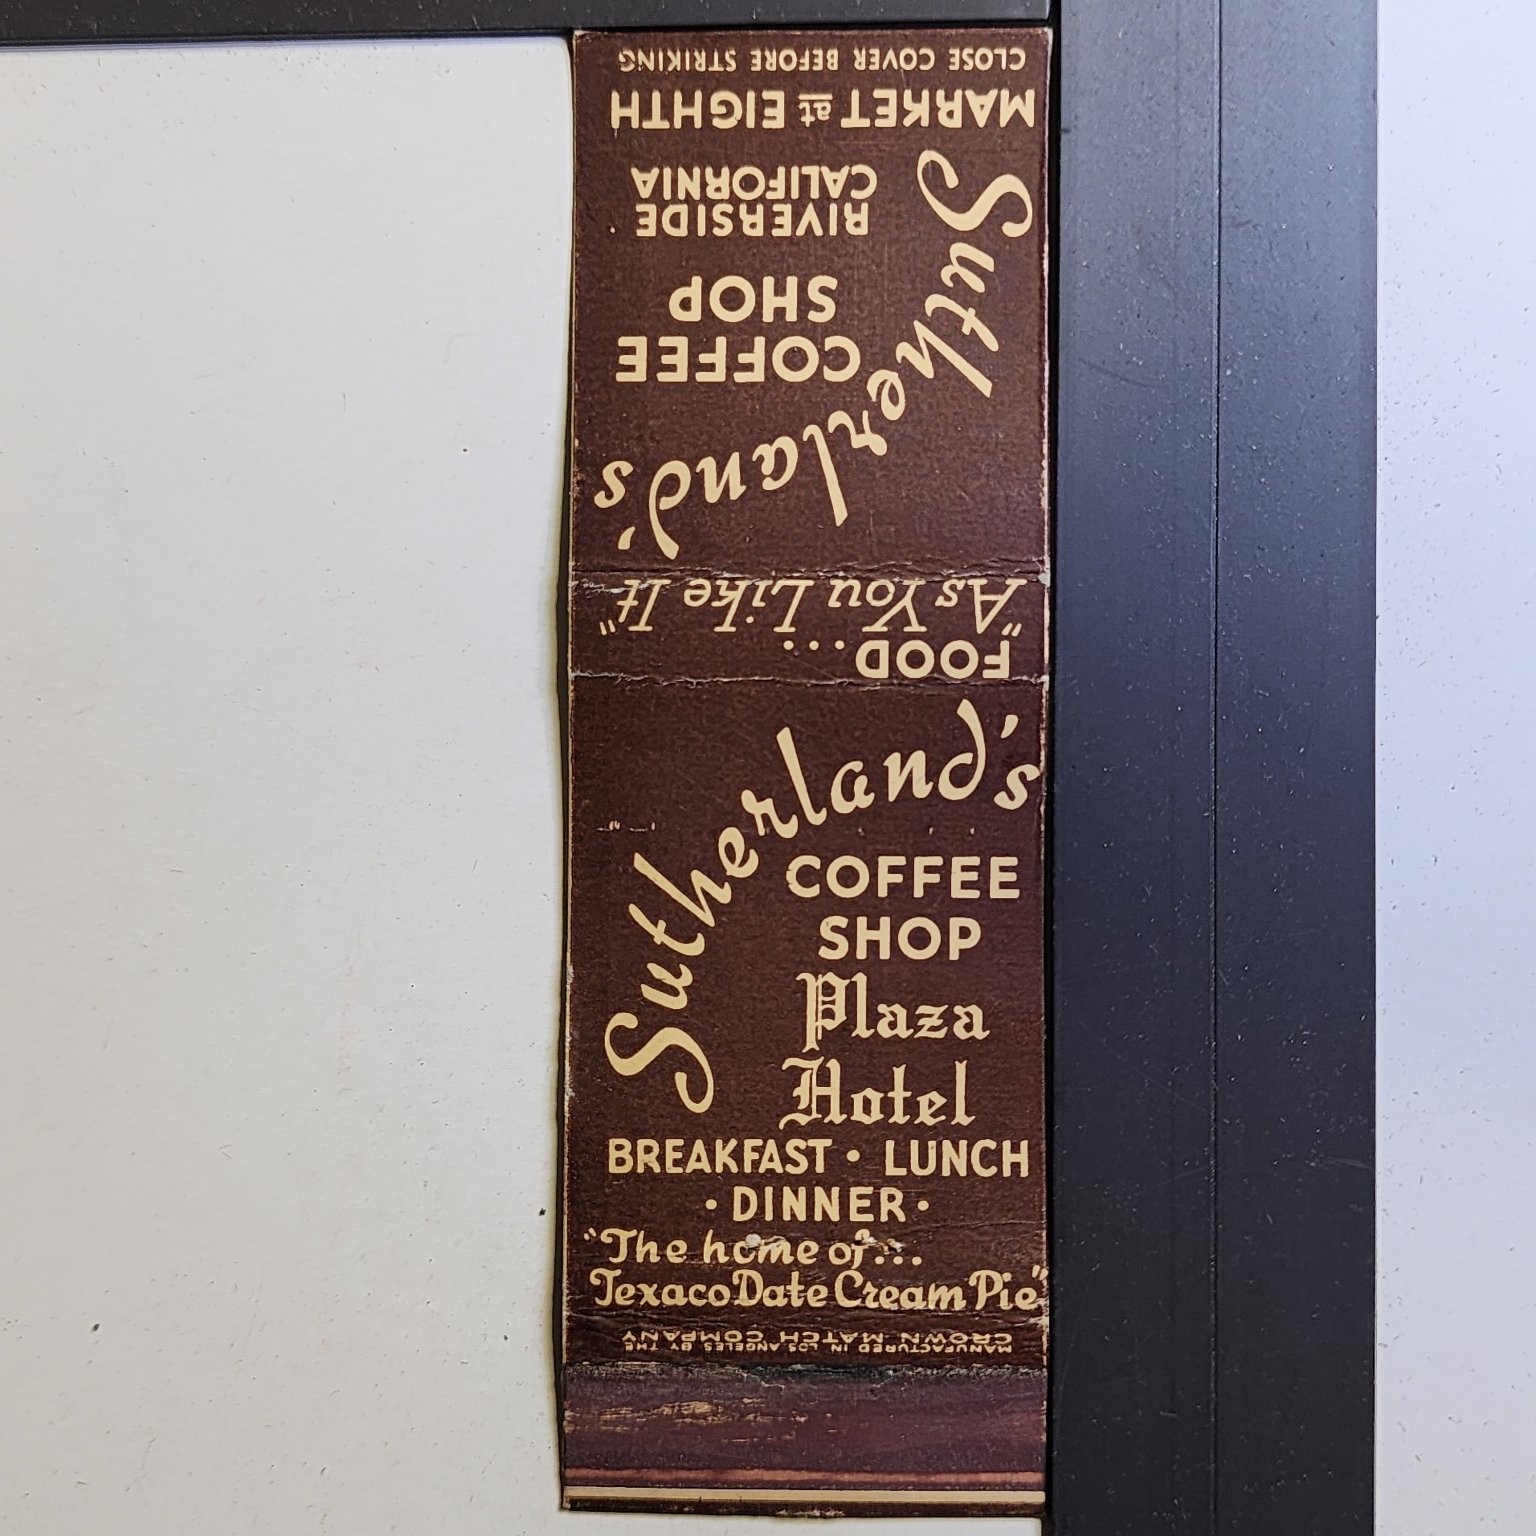 CLOSE COVER BEFORE STRIKING
MARKET at EIGHTH
RIVERSIDE
CALIFORNIA
Sutherland's
COFFEE
SHOP
FOOD...
"As You Like It"
Sutherland's
COFFEE
SHOP
Plaza
Hotel
BREAKFAST • LUNCH
• DINNER •
"The home of...
Texaco Date Cream Pie"
MANUFACTURED IN LOS ANGELES BY THE
CROWN MATCH COMPANY